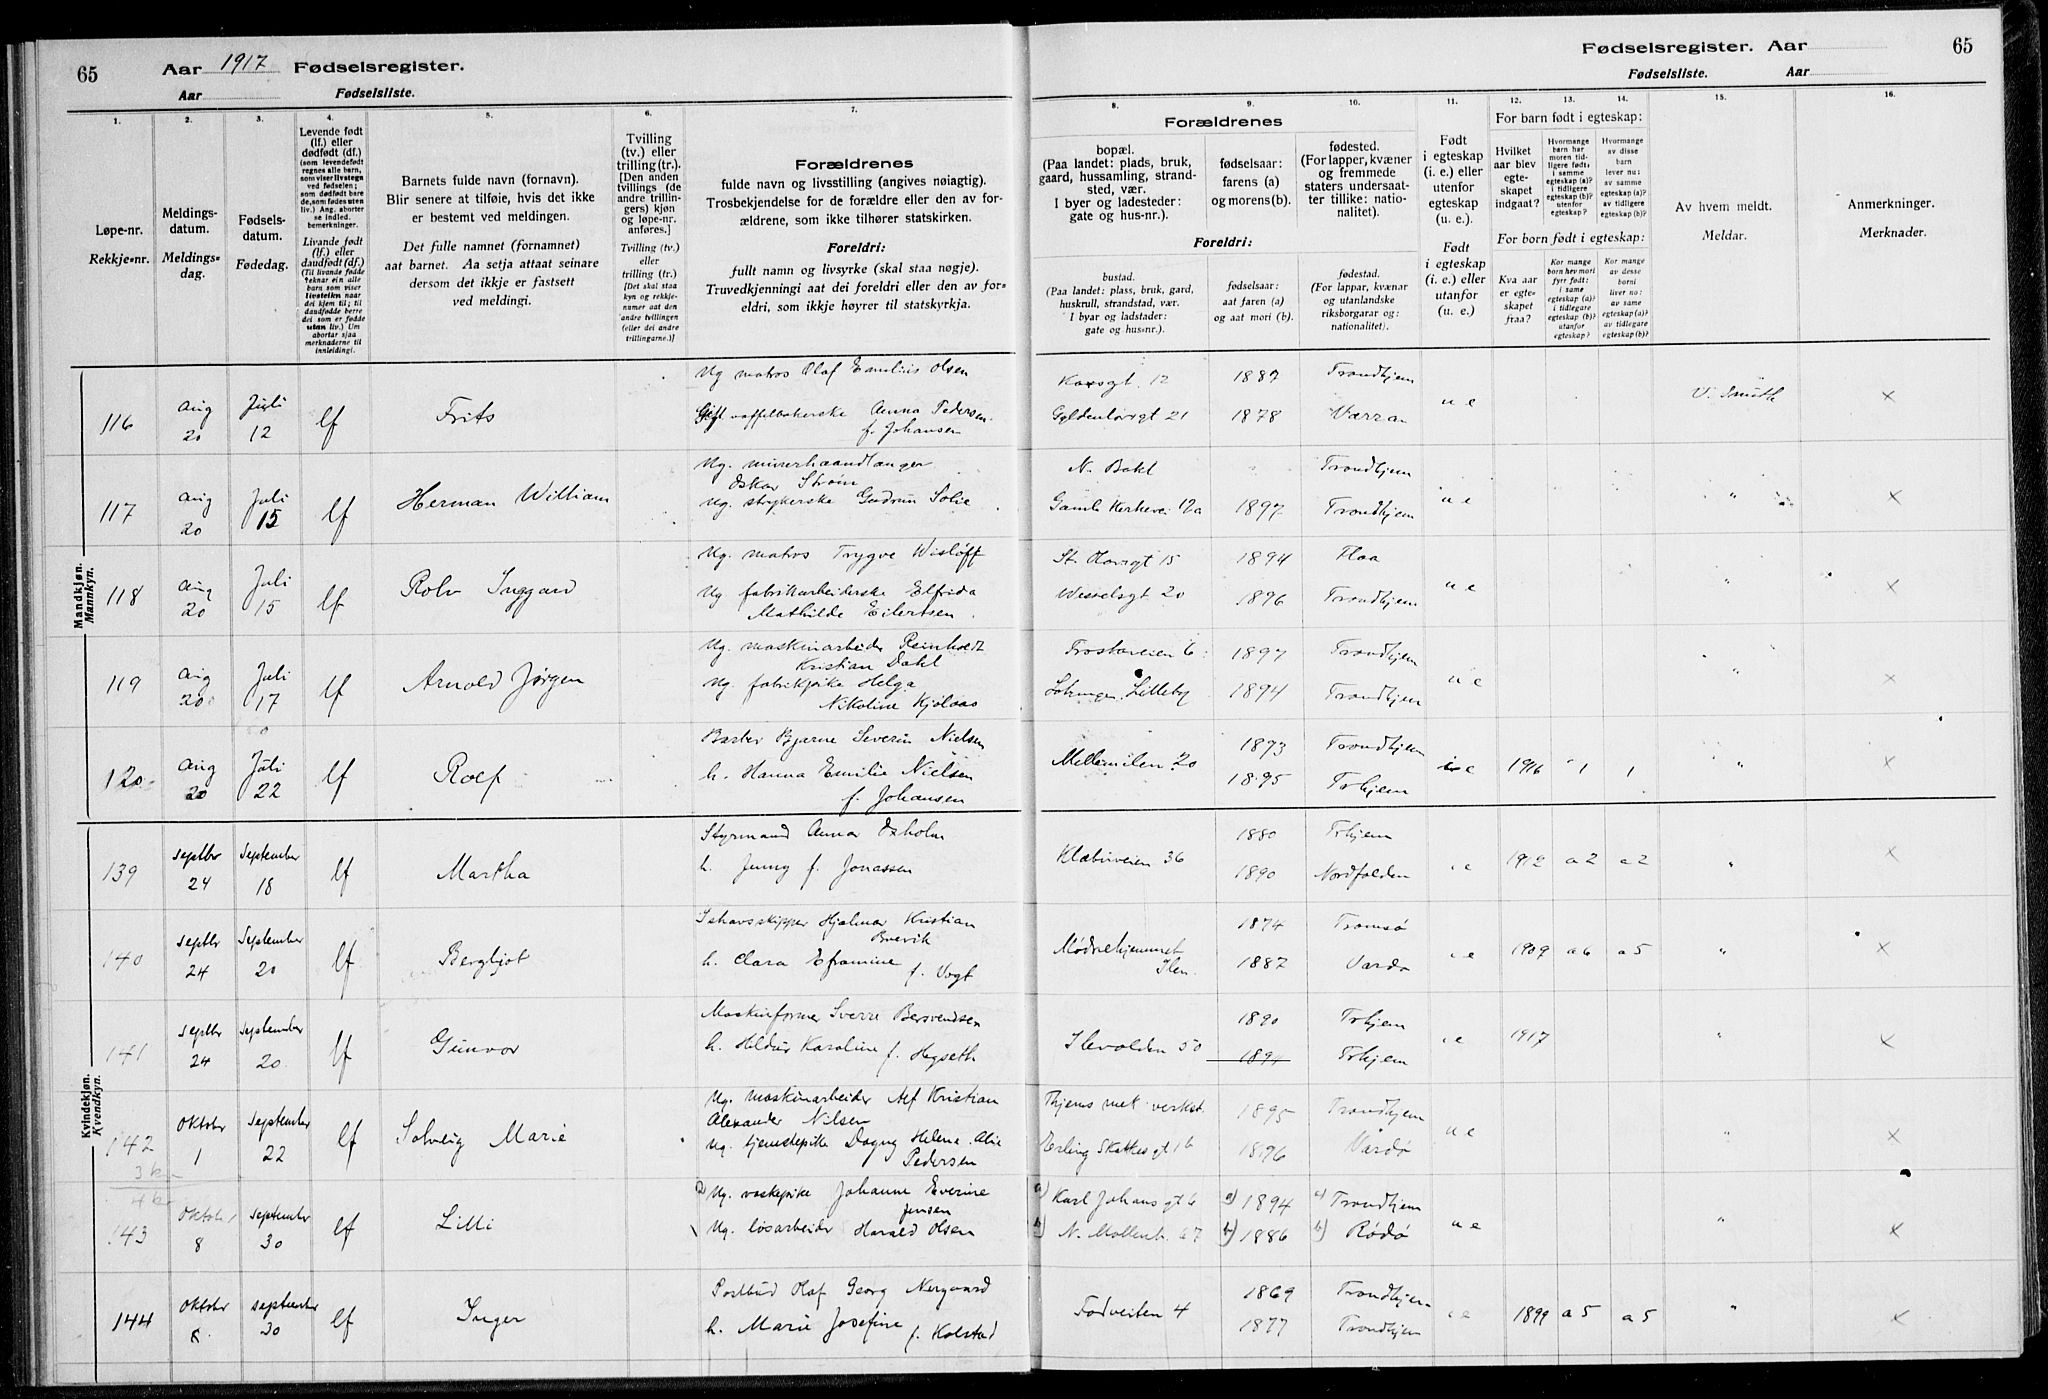 65 Aar 1917 Fødselsregister.
Aar Fødselsliste.
Fødselsregister. Aar 65
Fødselsliste. Aar
1. 2. 3. 4. 5. 6. 7. 8. 9. 10. 11. 12. 13. 14. 15. 16.
Løpe-nr.
Rekkje-nr.
Meldings-
datum.
Meldings-
dag.
Fødsels-
datum.
Fødedag.
Levende født
(lf.) eller
dødfødt (df.)
(som levendefødt
regnes alle barn,
som viser livstegn
ved fødselen;
som dødfødt bare
de, som fødes uten
liv.) Ang. aborter
se indled.
bemerkninger.
Livande født
(lf.) eller
daudfødt (df.)
(Til livande fødde
reknar ein alle
barn som viser
livsteikn naar
dei kjem til; til
daudfødde berre
dei som er fødde
utan liv.) Um
abortar sjaa
merknaderne til
innleidingi.
Barnets fulde navn (fornavn).
Blir senere at tilføie, hvis det ikke
er bestemt ved meldingen.
Det fulle namnet (fornamnet)
aat barnet. Aa setja attaat seinare
dersom det ikkje er fastsett
ved meldingi.
Tvilling
(tv.) eller
trilling (tr.).
[Den anden
tvillings (de
andre trillin-
gers) kjøn
og løpe-nr.
anføres.]
Tvilling (tv.)
eller
trilling (tr.)
[Det skal staa
kyn og rekkje-
numer aat den
andre tvillingen
(eller dei andre
trillingarne.)]
Forældrenes
fulde navn og livsstilling (angives nøiagtig).
Trosbekjendelse for de forældre eller den av for-
ældrene, som ikke tilhører statskirken.
Foreldri:
fullt namn og livsyrke (skal staa nøgje).
Truvedkjenningi aat dei foreldri eller den av for-
eldri, som ikkje høyrer til statskyrkja.
Forældrenes
bopæl.
(Paa landet: plads, bruk,
gaard, hussamling, strand-
sted, vær.
I byer og ladesteder:
gate og hus-nr.).
fødselsaar:
farens (a)
og morens (b).
fødested.
(For lapper, kvæner
og fremmede
staters undersaat-
ter tillike: natio-
nalitet).
Foreldri:
bustad.
(Paa landet: plass, bruk, gard,
huskrull, strandstad, vær.
I byar og ladstader:
gate og hus-nr.).
fødselsaar:
aat faren (a)
og aat mori (b).
fødestad.
(For lappar, kvænar
og utanlandske
riksborgarar og:
nationalitet).
Født
i egteskap
(i. e.) eller
utenfor
egteskap
(u. e.).
Født
i egteskap
(i. e.) eller
utanfor
egteskap
(u. e.)
For barn født i egteskap:
Hvilket
aar blev
egte-
skapet
indgaat?
Hvormange
barn har
moren tid-
ligere født:
i samme
egteskap (a)?
i tidligere
egteskap (b)?
utenfor
egteskap?
Hvormange
av disse
barn
lever nu:
av samme
egteskap (a)?
av tidligere
egteskap (b)?
For born født i egteskap:
Kva aar
er egte-
skapet
fraa?
Kor mange
born hev mori
fyrr født:
i same
egteskap (a)?
i tidlegare
egteskap (b)?
utanfor
egteskap?
Kor mange
av desse
borni
liver no:
av same
egteskap (a)?
av tidlegare
egteskap (b)?
Av hvem meldt.
Meldar.
Anmerkninger.
Merknader.
Mandkjøn.
Mannkyn.
116 Aug 20 Juli 12 lf Frits
Ug matros Olaf Emilius Olsen
Gift vaffelbakerske Anna Pedersen
f. Johansen
12 1887 Trondhjem
Gyldenløvsgt 21 1878 Værran
u e V. Smith ×
117 Aug 20 Juli 15 lf Herman William
Ug. murerhaandlanger
Oskar Strøm
Ug. strykerske Gudrun Solie
N. Bakl " Trondhjem
Gamle Kirkevei 12a 1897 Trondhjem
u e " ×
118 Aug 20 Juli 15 lf Rolv
Ug. matros Trygve Wisløff
Ug fabrikarbeiderske Elfrida
Mathilde Eilertsen
St. Olavsgt 15 1894 Flaa
Wesselsgt 20 1896 Trondhjem
u e " ×
119 Aug 20 Juli 17 lf Arnold Jørgen
Ug. maskinarbeider Reinholdt
Kristian Dahl
Ug. fabrikpike Helga
Nikoline Kjølaas
Frostaveien 6 1897 Trondhjem
Lilleby 1894 Trondhjem
u e " ×
120 Aug 20 Juli 22 lf Rolf
Barber Bjarne Severin Nielsen
h. Hanna Emilie Nielsen
f. Johansen
Mellemilen 20 1893 Trondhjem
1895 Trhjem
i e 1916 1 1 " ×
Kvindekjøn.
Kvendkyn.
139 Septbr 24 September 18 lf Martha
Styrmand Annar Oxholm
h. Jenny f. Jonassen
Klæbuveien 36 1880 Trhjem
1890 Nordfolden
i e 1912 a 2 a 2 " ×
140 Septbr 24 September 20 lf Bergljot
Ishavsskipper Hjalmar Kristian
Brevik
h. Clara Eframine f. Vogt
Mødrehjemmet 1874 Tromsø
Ilen. 1887 Vardø
i e 1909 a 6 a 5 " ×
141 Septbr 24 September 20. lf Gunvor
Maskinformer Sverre Bersvendsen
h. Hildur Karoline f. Hegseth
Ilevolden 50 1890 Trhjem
1891 Trhjem
i e 1917 " ×
142 Oktober 1 September 22 lf Solveig Marie
Ug. maskinarbeider Alf Kristian
Alexander Nilsen
Ug. tjenstepike Dagny Helena Alie
Pedersen
Thjems mek. verkst. 1895 Trondhjem
Erling Skakkes gt 16 1896 Vardø
u e " ×
3 k
4 k
143 Oktober 8 September 30 lf Lilli
a) Ug. vaskepike Johanne Everine
Jensen
Ug. løsarbeider Harald Olsen
a) Karl Johans gt 6 a) 1894 a) Trondhjem
b) N. Møllenb. 67 b) 1886 b) Rødø
u e " ×
144 Oktober 8 September 30 lf Inger
Postbud Olaf Georg Nergaard
h. Marie Josefine f. Kolstad
Fodveiten 4 1869 Trondhjem
1877 Trondhjem
i e 1899 a 5 a 5 " ×